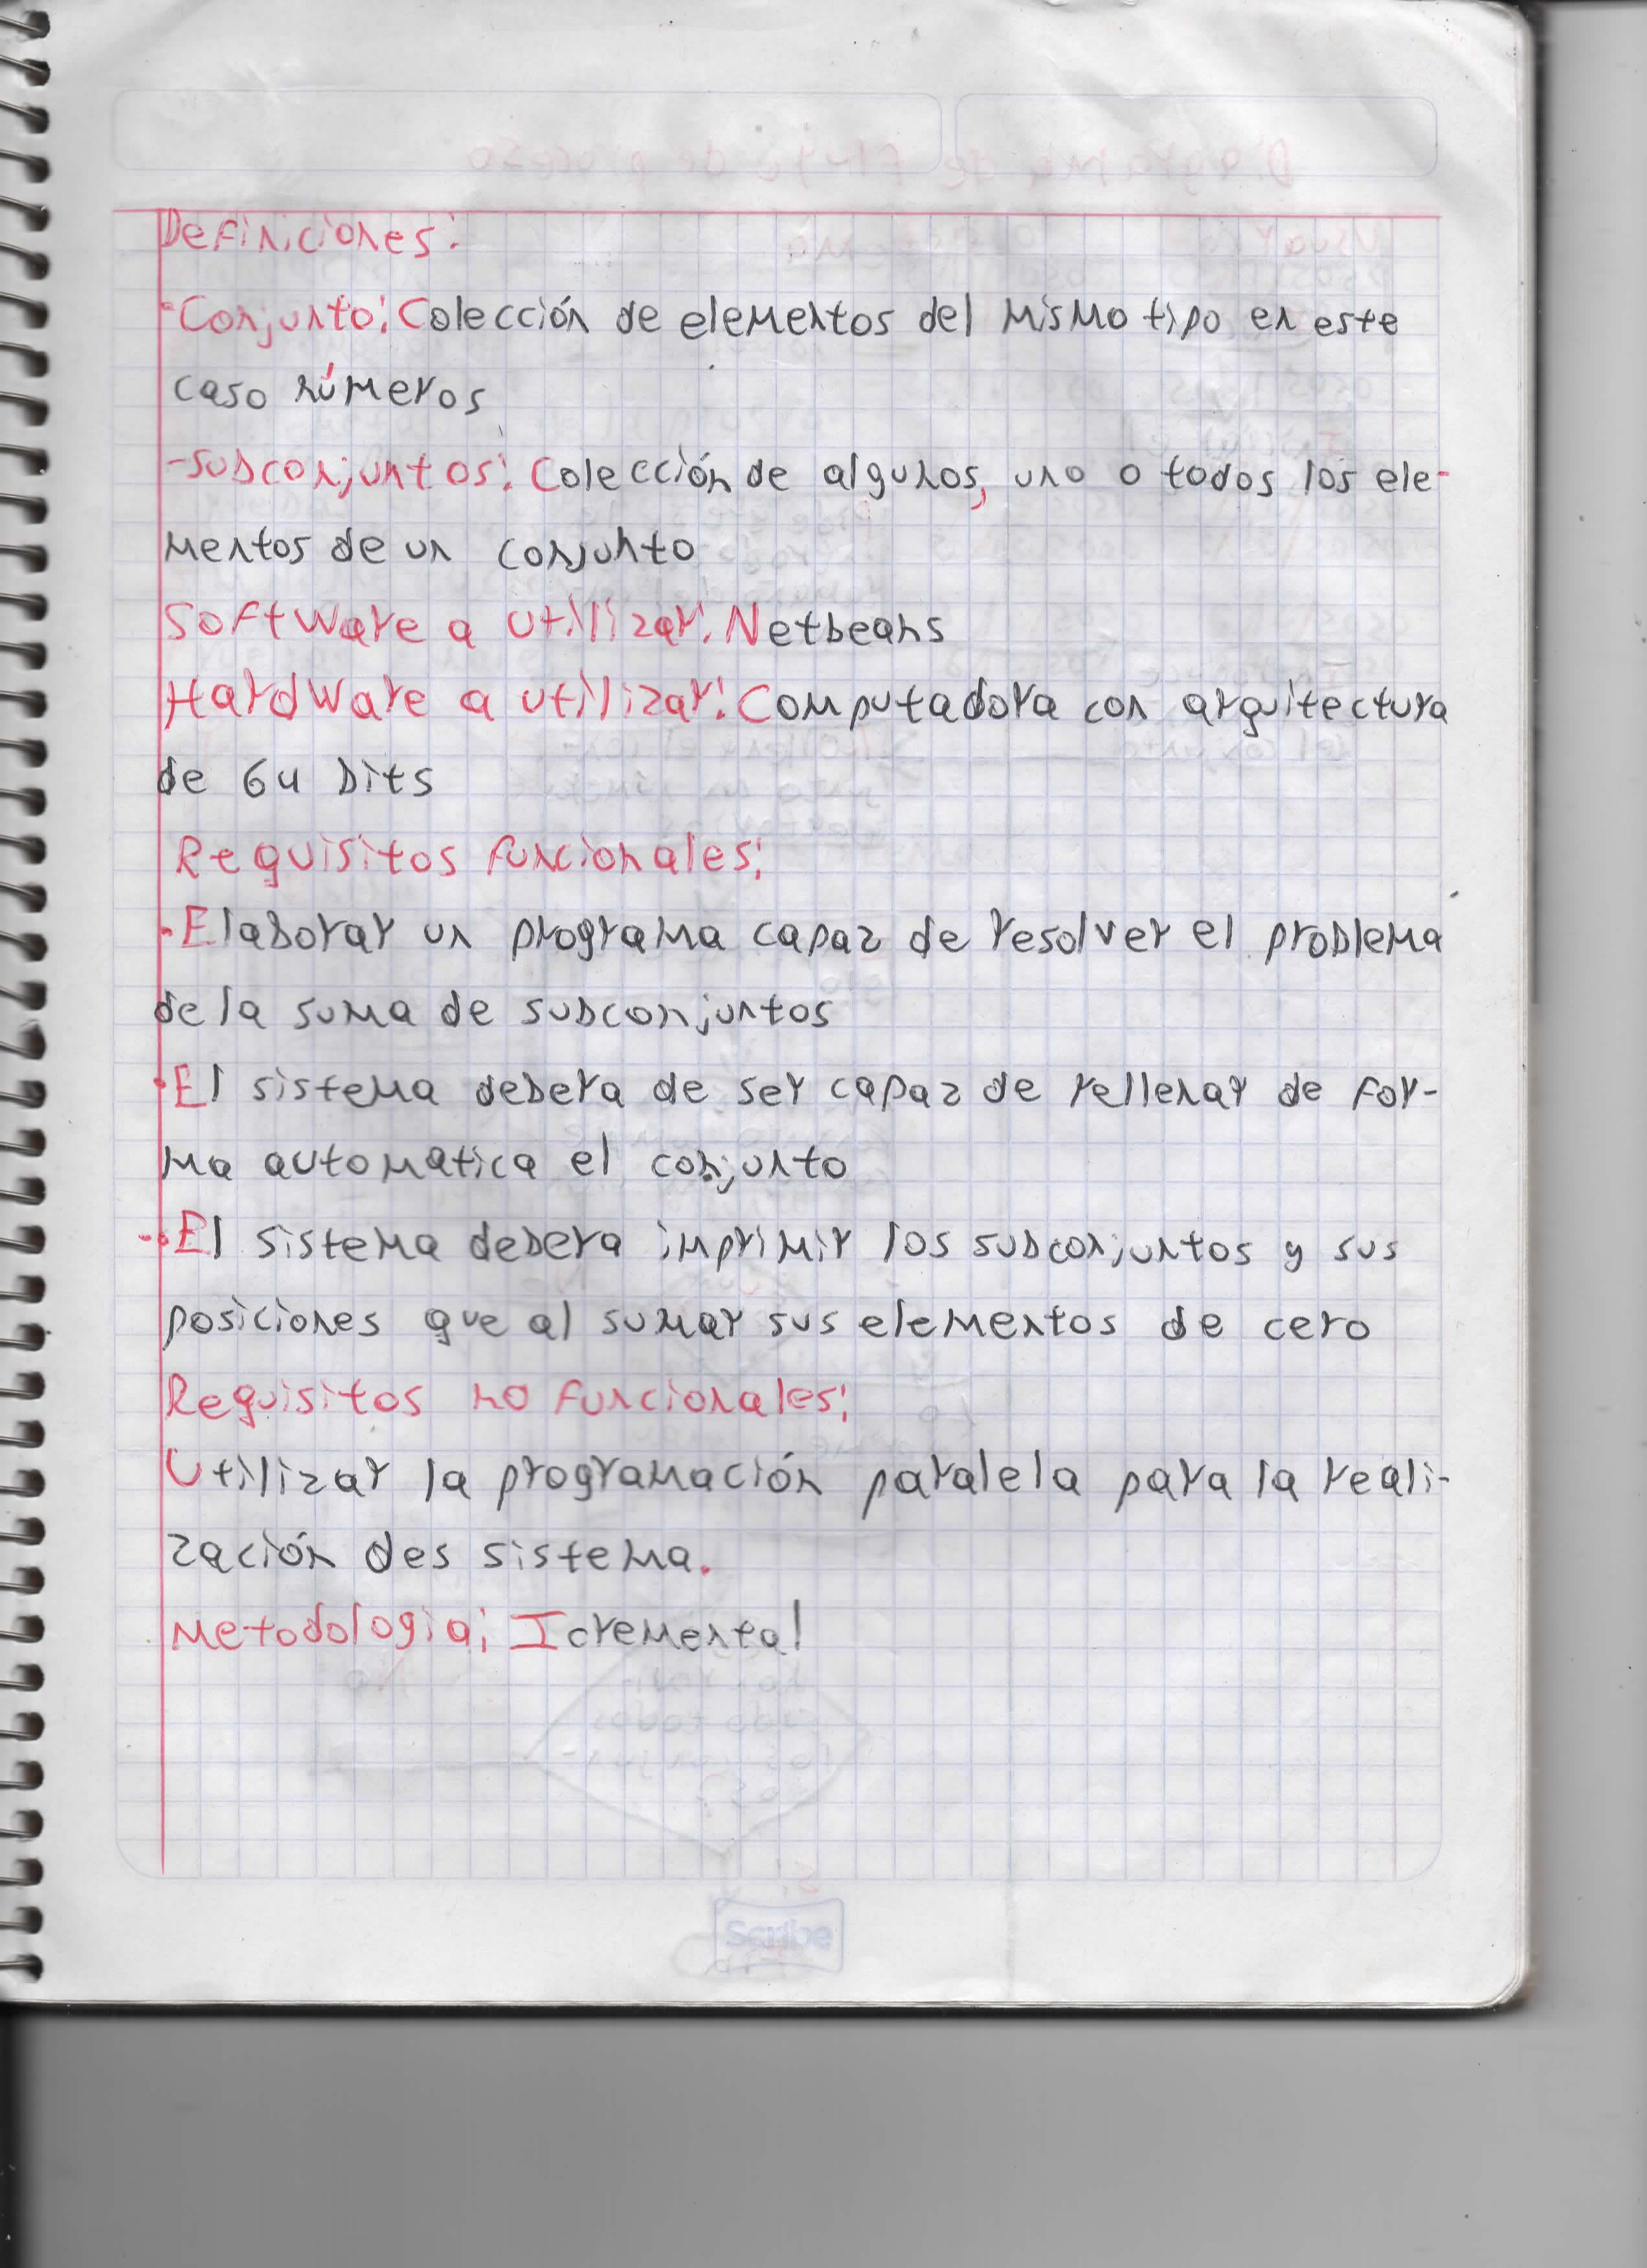 Definiciones:
-Conjunto: Colección de elementos del mismo tipo en este
caso números
-subconjuntos: Colección de algunos, uno o todos los ele-
mentos de un conjunto
Software a utilizar: Netbeans
Hardware a utilizar: Computadora con arquitectura
de 64 bits
Requisitos funcionales:
-Elaborar un programa capaz de resolver el problema
de la suma de subconjuntos
-El sistema debera de ser capaz de rellenar de for-
ma automatica el conjunto
-El sistema debera imprimir los subconjuntos y sus
posiciones que al sumar sus elementos de cero
Requisitos no funcionales:
Utilizar la programación paralela para la reali-
zación des sistema.
Metodologia: Icremental
Scribe